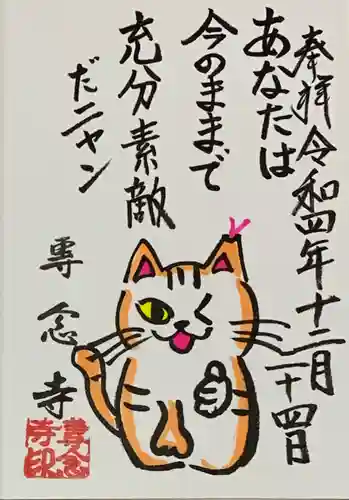 奉拝 令和四年十二月
二十四日
あなたは
今のままで
充分素敵
だニャン
専念寺
専念
寺印